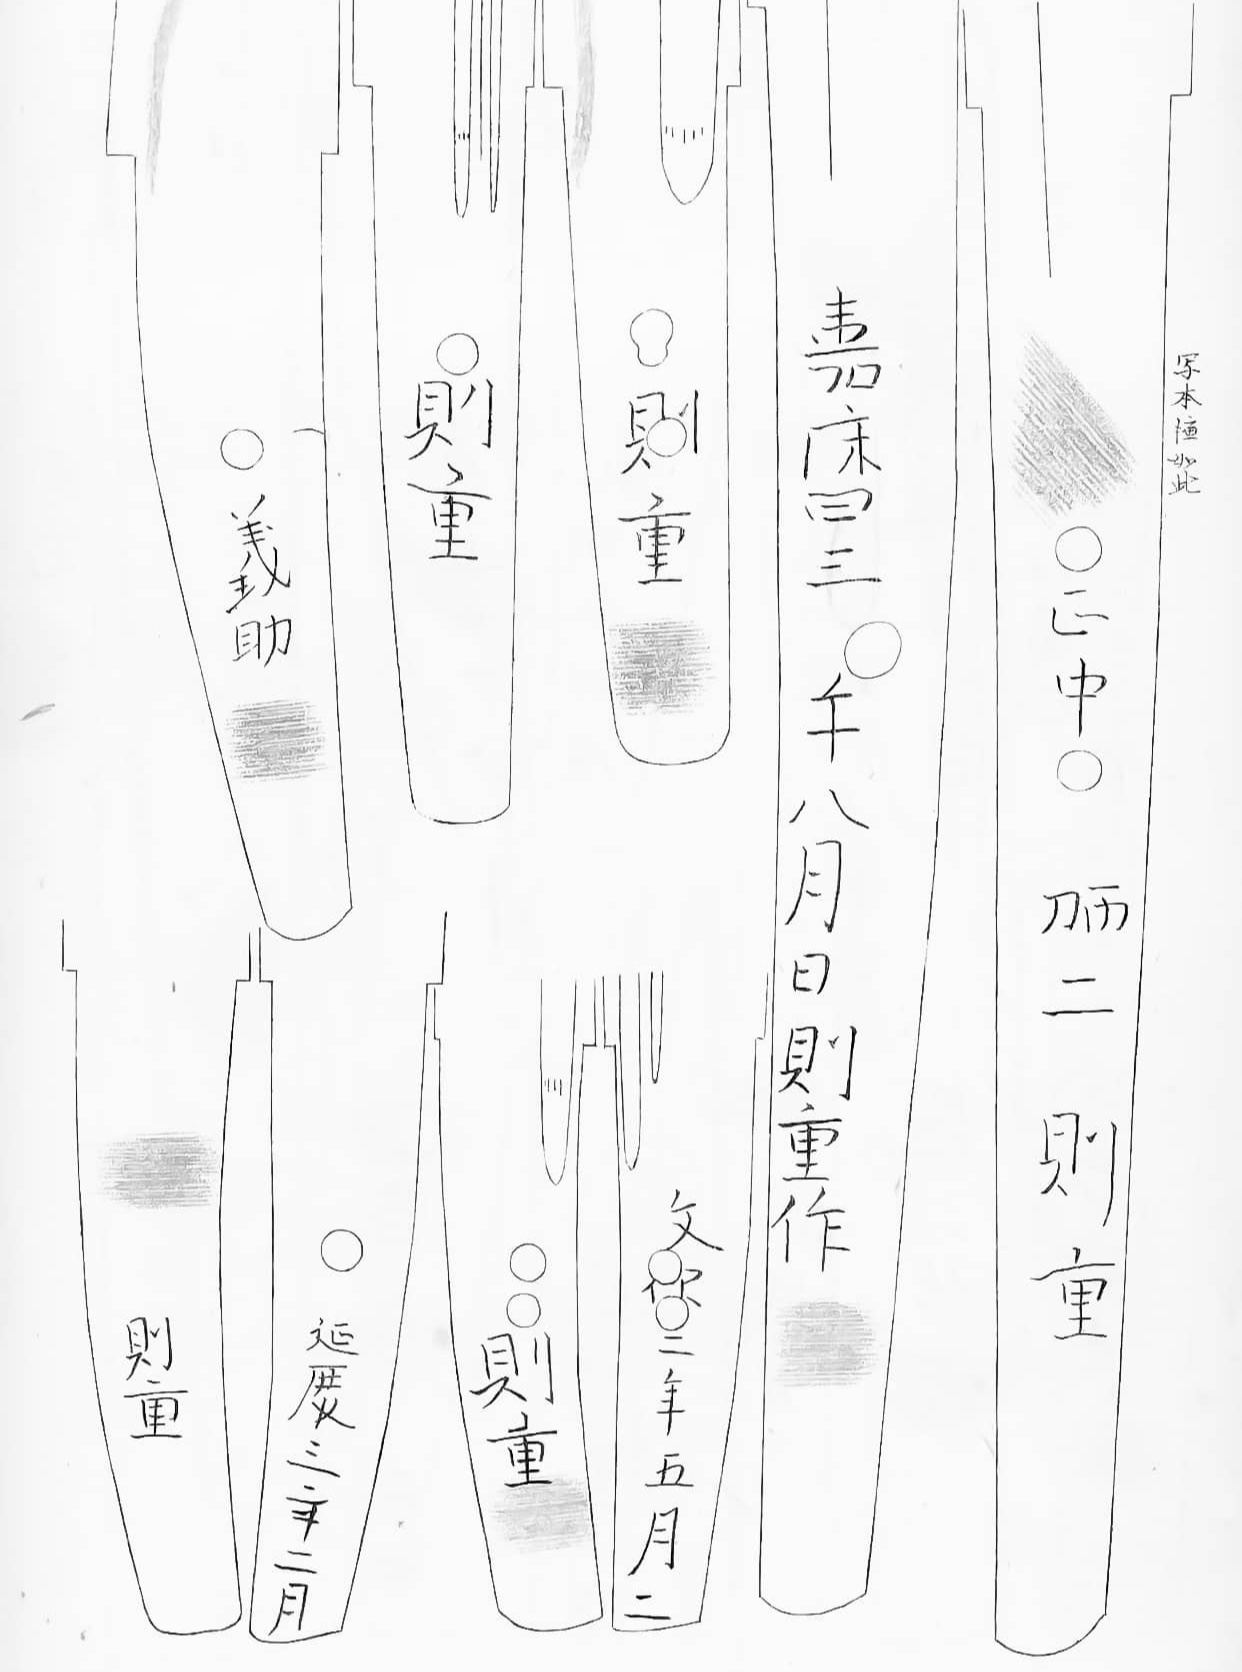 写本如此
正中二則重
嘉暦三年八月日則重作
則重
則重
義助
文保二年五月二
則重
延慶三年二月
則重